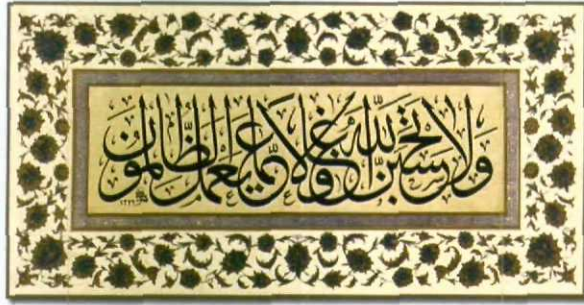 وَلَا تَحْسَبَنَّ اللهَ غَافِلًا عَمَّا يَعْمَلُ الظَّالِمُونَ